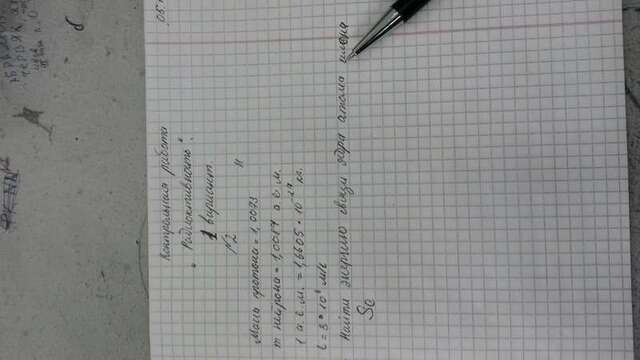 Контрольная работа
"Радиоактивность".
1 вариант
№2
Масса протона = 1,0073 "
m нейтрона = 1,0087 а.е.м.
1 а.е.м. = 1,6605 * 10⁻²⁷ кг.
c = 3 * 10⁸ м/с
Найти энергию связи ядра атома